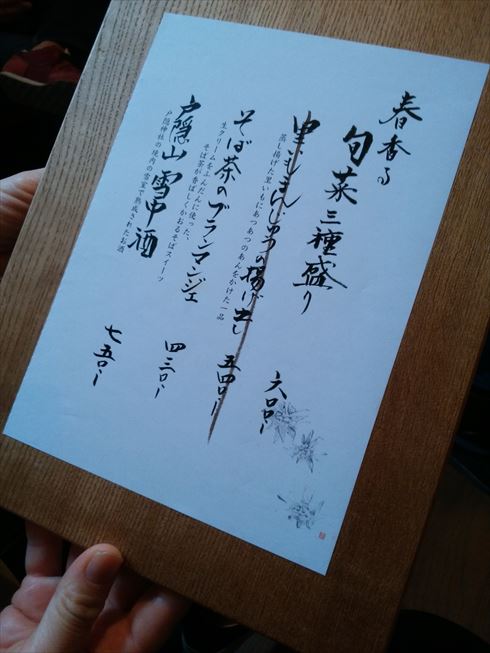 春香る
旬菜三種盛り
六〇〇ー
里いもまんじゅうの揚げ出し
蒸し揚げた里いもにあつあつのあんをかけた一品
五四〇ー
そば茶のブランマンジェ
生クリームをふんだんに使った、
そば茶が香ばしくかおるそばスイーツ
四三〇ー
戸隠山雪中酒
戸隠神社の境内の雪室で熟成されたお酒
七五〇ー